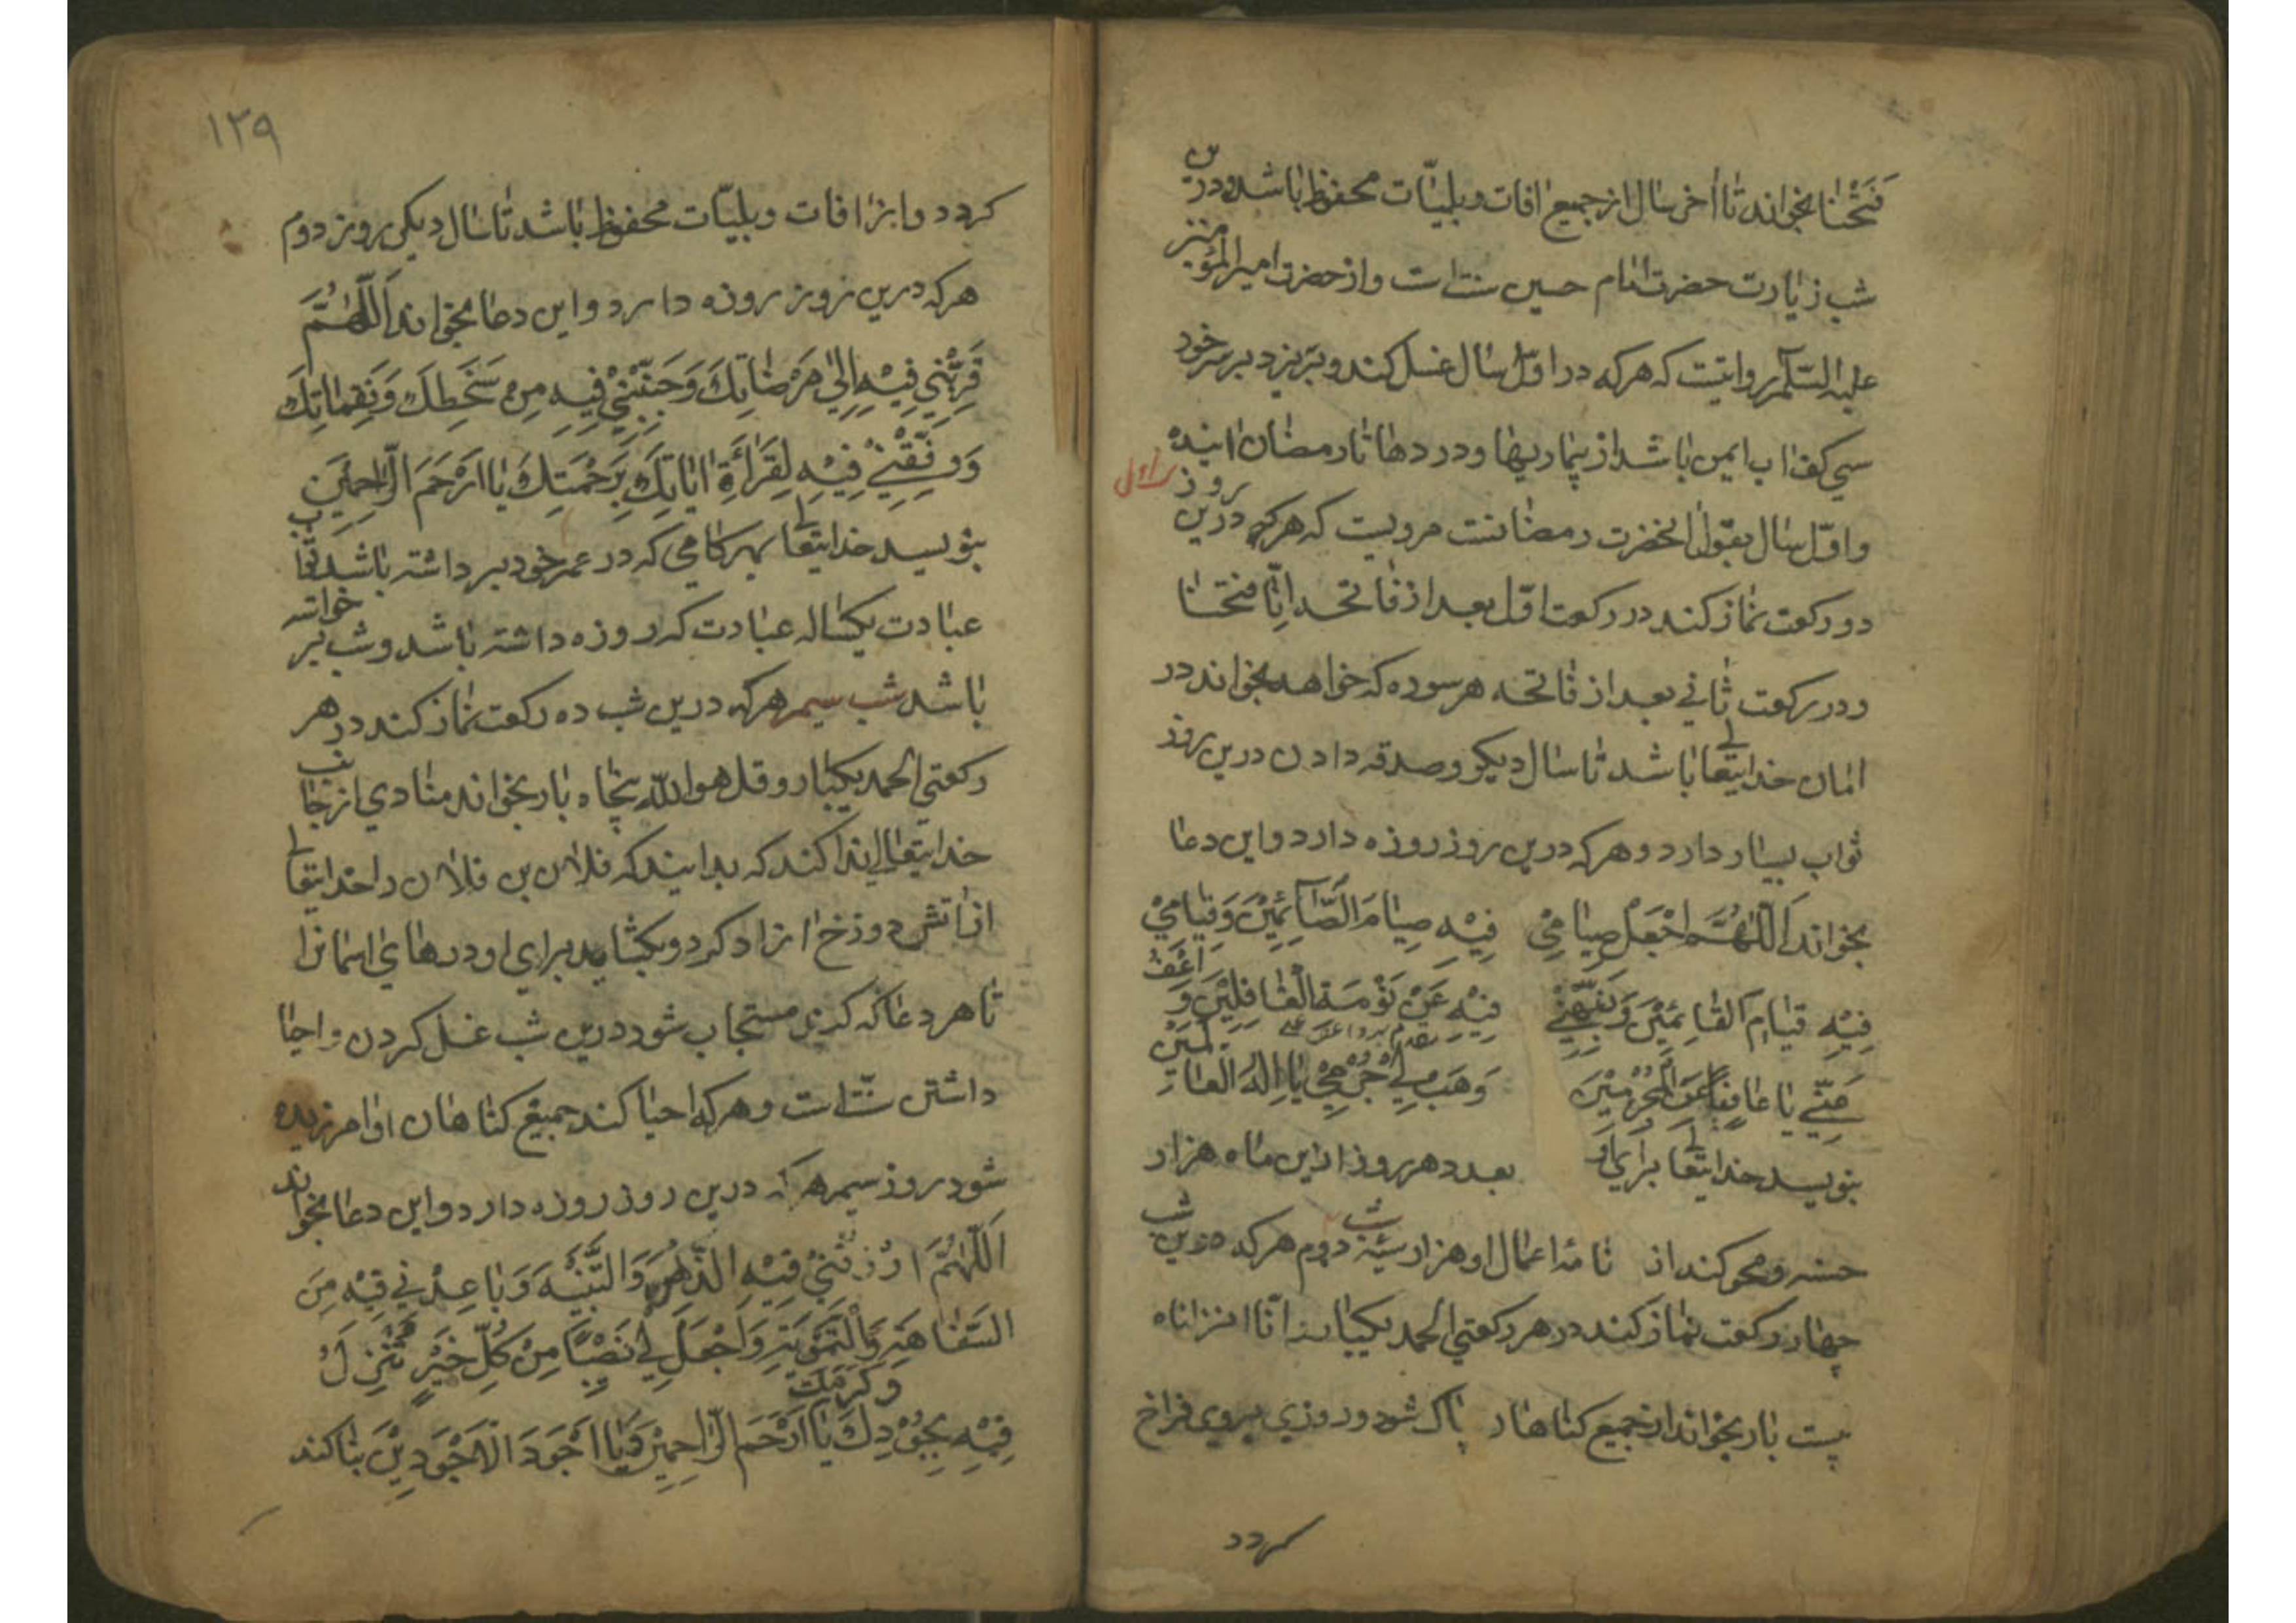 فتحنا بخواند تا آخر سال از جمیع افات و بلیّات محفوظ باشد و درین
شب زیارت حضرت امام حسین سنت است و از حضرت امیر المؤمنین
علیه السّلام روایتست که هرکه در اوّل سال غسل کند و بریزد بر سر خود
سی کف اب ایمن باشد از بیماریها و دردها تا رمضان اینده
روز اول
و اوّل سال بقول انحضرت رمضانست مرویست که هرکه درین
دو رکعت نماز کند در رکعت اوّل بعد از فاتحه انّا فتحنا
و در رکعت ثانی بعد از فاتحه هر سوره که خواهد بخواند در
امان خدایتعالی باشد تا سال دیکر و صدقه دادن درین روز
ثواب بسیار دارد و هرکه درین روز روزه دارد و این دعا
بخواند اَللّٰهُمَّ اجْعَلْ صِیٰامِی فِیْهِ صِیٰامَ الصَّآئِمِیْنَ وَقِیٰامِیْ
فِیْهِ قِیٰامَ القٰائِمِیْنَ وَنَبِّهْنِیْ فِیْهِ عَنْ نَوْمَةِ الْغٰافِلِیْنَ وَ اعْفُ
عَنّی یا عٰافِیاً عَنِ الْمُجْرِمِیْنَ وَهَبْ لِی جُرْمِیْ یٰا اِلٰهَ العٰالَمِیْنَ
بنویسد خدایتعالی برای او بعدد هر روز از این ماه هزار
حسنه و محو کند از نامهٔ اعمال او هزار سیّئه شب دوم هرکه درین شب
چهار رکعت نماز کند در هر رکعتی الحمد یکبار انّا انزلناه
بیست بار بخواند از جمیع کناهان پاک شود و روزی بروی فراخ
کردد
۱۳۹
کردد و از افات و بلیّات محفوظ باشد تا سال دیکر روز دوم
هرکه درین روز روزه دارد و این دعا بخواند اَللّٰهُمَّ
قَرِّبْنِی فِیْهِ اِلیٰ مَرْضٰاتِكَ وَجَنِّبْنِیْ فِیْهِ مِنْ سَخَطِكَ وَنَقِمٰاتِكَ
وَوَفِّقْنِیْ فِیْهِ لِقَرٰائَةِ اٰیٰاتِكَ بِرَحْمَتِكَ یٰا اَرْحَمَ الرّٰاحِمِیْنَ
بنویسد خدایتعالی بهر کامی که در عمر خود برداشته باشد ثواب
عبادت یکساله عبادت که روزه داشته باشد و شب برخواسته
باشد شب سیم هرکه درین شب ده رکعت نماز کند در هر
رکعتی الحمد یکبار و قل هو الله پنجاه بار بخواند منادی از جانب
خدایتعالی ندا کند که بدانیند که فلان بن فلان را خدایتعالی
از اتش دوزخ ازاد کرد و بکشاید برای او درهای اسمانرا
تا هر دعا که کند مستجاب شود درین شب غسل کردن و احیا
داشتن سنّت است و هرکه احیا کند جمیع کناهان او امرزیده
شود روز سیم هرکه درین روز روزه دارد و این دعا بخواند
اَللّٰهُمَّ ارْزُقْنِیْ فِیْهِ الذِّهْنَ وَالتَّنْبِیْهَ وَبٰاعِدْنِی فِیْهِ مِنَ
السَّفٰاهَةِ وَالْتَمْوِیْهِ وَاجْعَلْ لِیْ نَصِیْبًا مِنْ كُلِّ خَیْرٍ تُنْزِلُ
فِیْهِ بِجُوْدِكَ وكرمك یٰا اَرْحَمَ الرّٰاحِمِیْنَ وَیٰا اَجْوَدَ الْاَجْوَدِیْنَ بنا کند